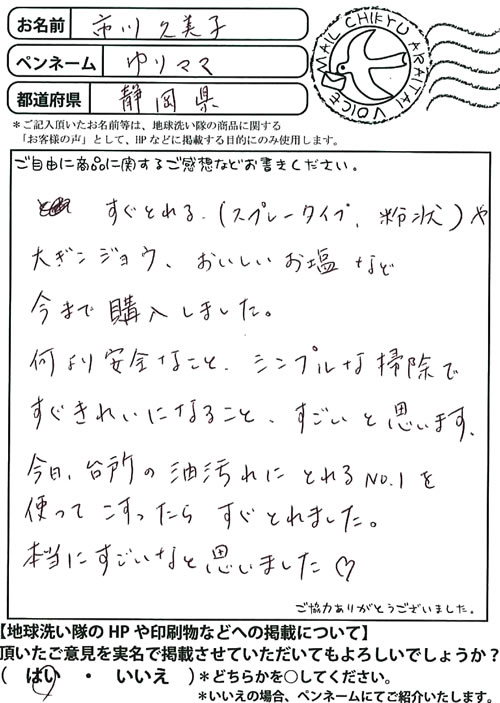 お名前 市川 久美子
ペンネーム ゆりママ
都道府県 静岡県
MAIL CHIKYU ARAITAI VOICE
＊ご記入頂いたお名前等は、地球洗い隊の商品に関する
「お客様の声」として、HPなどに掲載する目的にのみ使用します。
ご自由に商品に関するご感想などお書きください。
すぐとれる.(スプレータイプ、粉状)や
大ギンジョウ、おいしいお塩など
今まで購入しました。
何より安全なこと、シンプルな掃除で
すぐきれいになること、すごいと思います、
今日、台所の油汚れにとれるNO.1を
使ってこすったらすぐとれました。
本当にすごいなと思いました♡
ご協力ありがとうございました。
【地球洗い隊のHPや印刷物などへの掲載について】
頂いたご意見を実名で掲載させていただいてもよろしいでしょうか？
（ はい ・ いいえ ）＊どちらかを○してください。
＊いいえの場合、ペンネームにてご紹介いたします。